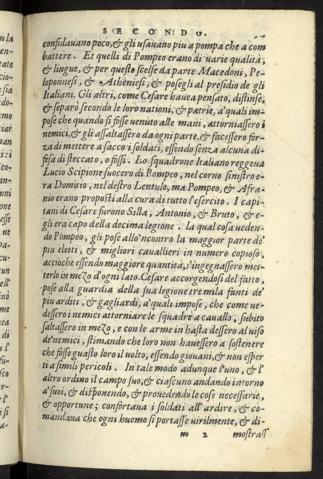 SECONDO.
confidauano poco, & gli usauano piu a pompa che a com
battere. Et quelli di Pompeo erano di uarie qualità,
& lingue, & per questo scelse da parte Macedoni, Pe-
loponnesi, & Atheniesi, & posegli al presidio de gli
Italiani. Gli altri, come Cesare hauea pensato, distinse,
& separò secondo le loro nationi, & patrie, a' quali im-
pose che quando si fosse uenuto alle mani, attorniassero i
nemici, & gli assaltassero da ogni parte, & facessero for-
za di mettere a sacco i soldati, essendo senza alcuna di-
fesa di steccato, o fossi. Lo squadrone Italiano reggeua
Lucio Scipione suocero di Pompeo, nel corno sinistro e-
ra Domitio, nel destro Lentulo, ma Pompeo, & Afra-
nio erano proposti alla cura di tutto l'esercito. I capi-
tani di Cesare furono Silla, Antonio, & Bruto, & e-
gli era capo della decima legione. la qual cosa ueden-
do Pompeo, gli pose allo'ncontro la maggior parte de'
piu eletti, & migliori cauallieri in numero copioso,
accioche essendo maggiore quantità, s'ingegnassero met-
terlo in mezo d'ogni lato. Cesare accorgendosi del fatto,
pose alla guardia della sua legione tre mila fanti de'
piu arditi, & gagliardi, a' quali impose, che come ue-
dessero i nemici attorniare le squadre a cauallo, subito
saltassero in mezo, e con le arme in hasta dessero al uiso
de' nemici, stimando che loro non hauessero a sostenere
che fosse guasto loro il uolto, essendo giouani, & non esper
ti a simili pericoli. In tale modo adunque l'uno, & l'
altro ordino il campo suo, & ciascuno andando intorno
a' suoi, & disponendo, & prouedendo le cose necessarie,
& opportune; confortaua i soldati all'ardire, & co-
mandaua che ogni huomo si portasse uirilmente, & di-
m 2 mostrass